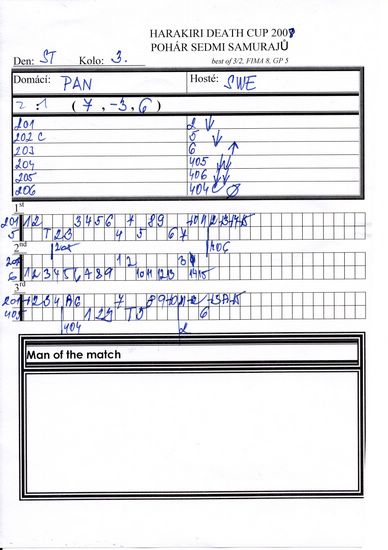 HARAKIRI DEATH CUP 2007
POHÁR SEDMI SAMURAJŮ
Den: ST Kolo: 3. best of 3/2, FIMA 8, GP 5
Domácí: PAN Hosté: SWE
2 : 1 ( 7 , -3 , 6 )
201 2
202 C 5
203 6
204 405
205 406
206 404 C
1st
201 1 2 3 4 5 6 7 8 9
5 T 2 3 4 5 6 7
205 406
2nd
1 2 3
6 1 2 3 4 5 6 7 8 9 10 11 12 13
3rd
201 2 3 4 6 7 8 9
405 1 2 3 T 5 6
404 2
Man of the match